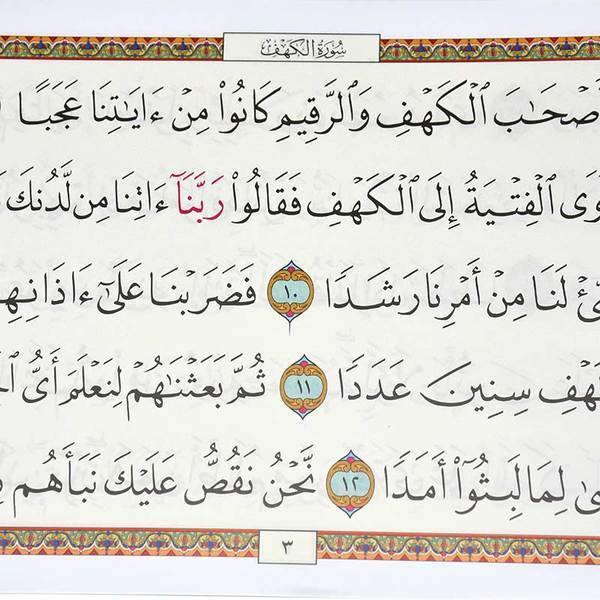 سُورَةُ الكَهْفِ
أَصْحَٰبَ ٱلْكَهْفِ وَٱلرَّقِيمِ كَانُوا۟ مِنْ ءَايَٰتِنَا عَجَبًا
ٱلْفِتْيَةُ إِلَى ٱلْكَهْفِ فَقَالُوا۟ رَبَّنَآ ءَاتِنَا مِن لَّدُنكَ
لَنَا مِنْ أَمْرِنَا رَشَدًا ١٠ فَضَرَبْنَا عَلَىٰٓ ءَاذَانِهِ
سِنِينَ عَدَدًا ١١ ثُمَّ بَعَثْنَٰهُمْ لِنَعْلَمَ أَىُّ
لِمَا لَبِثُوٓا۟ أَمَدًا ١٢ نَّحْنُ نَقُصُّ عَلَيْكَ نَبَأَهُم
٣